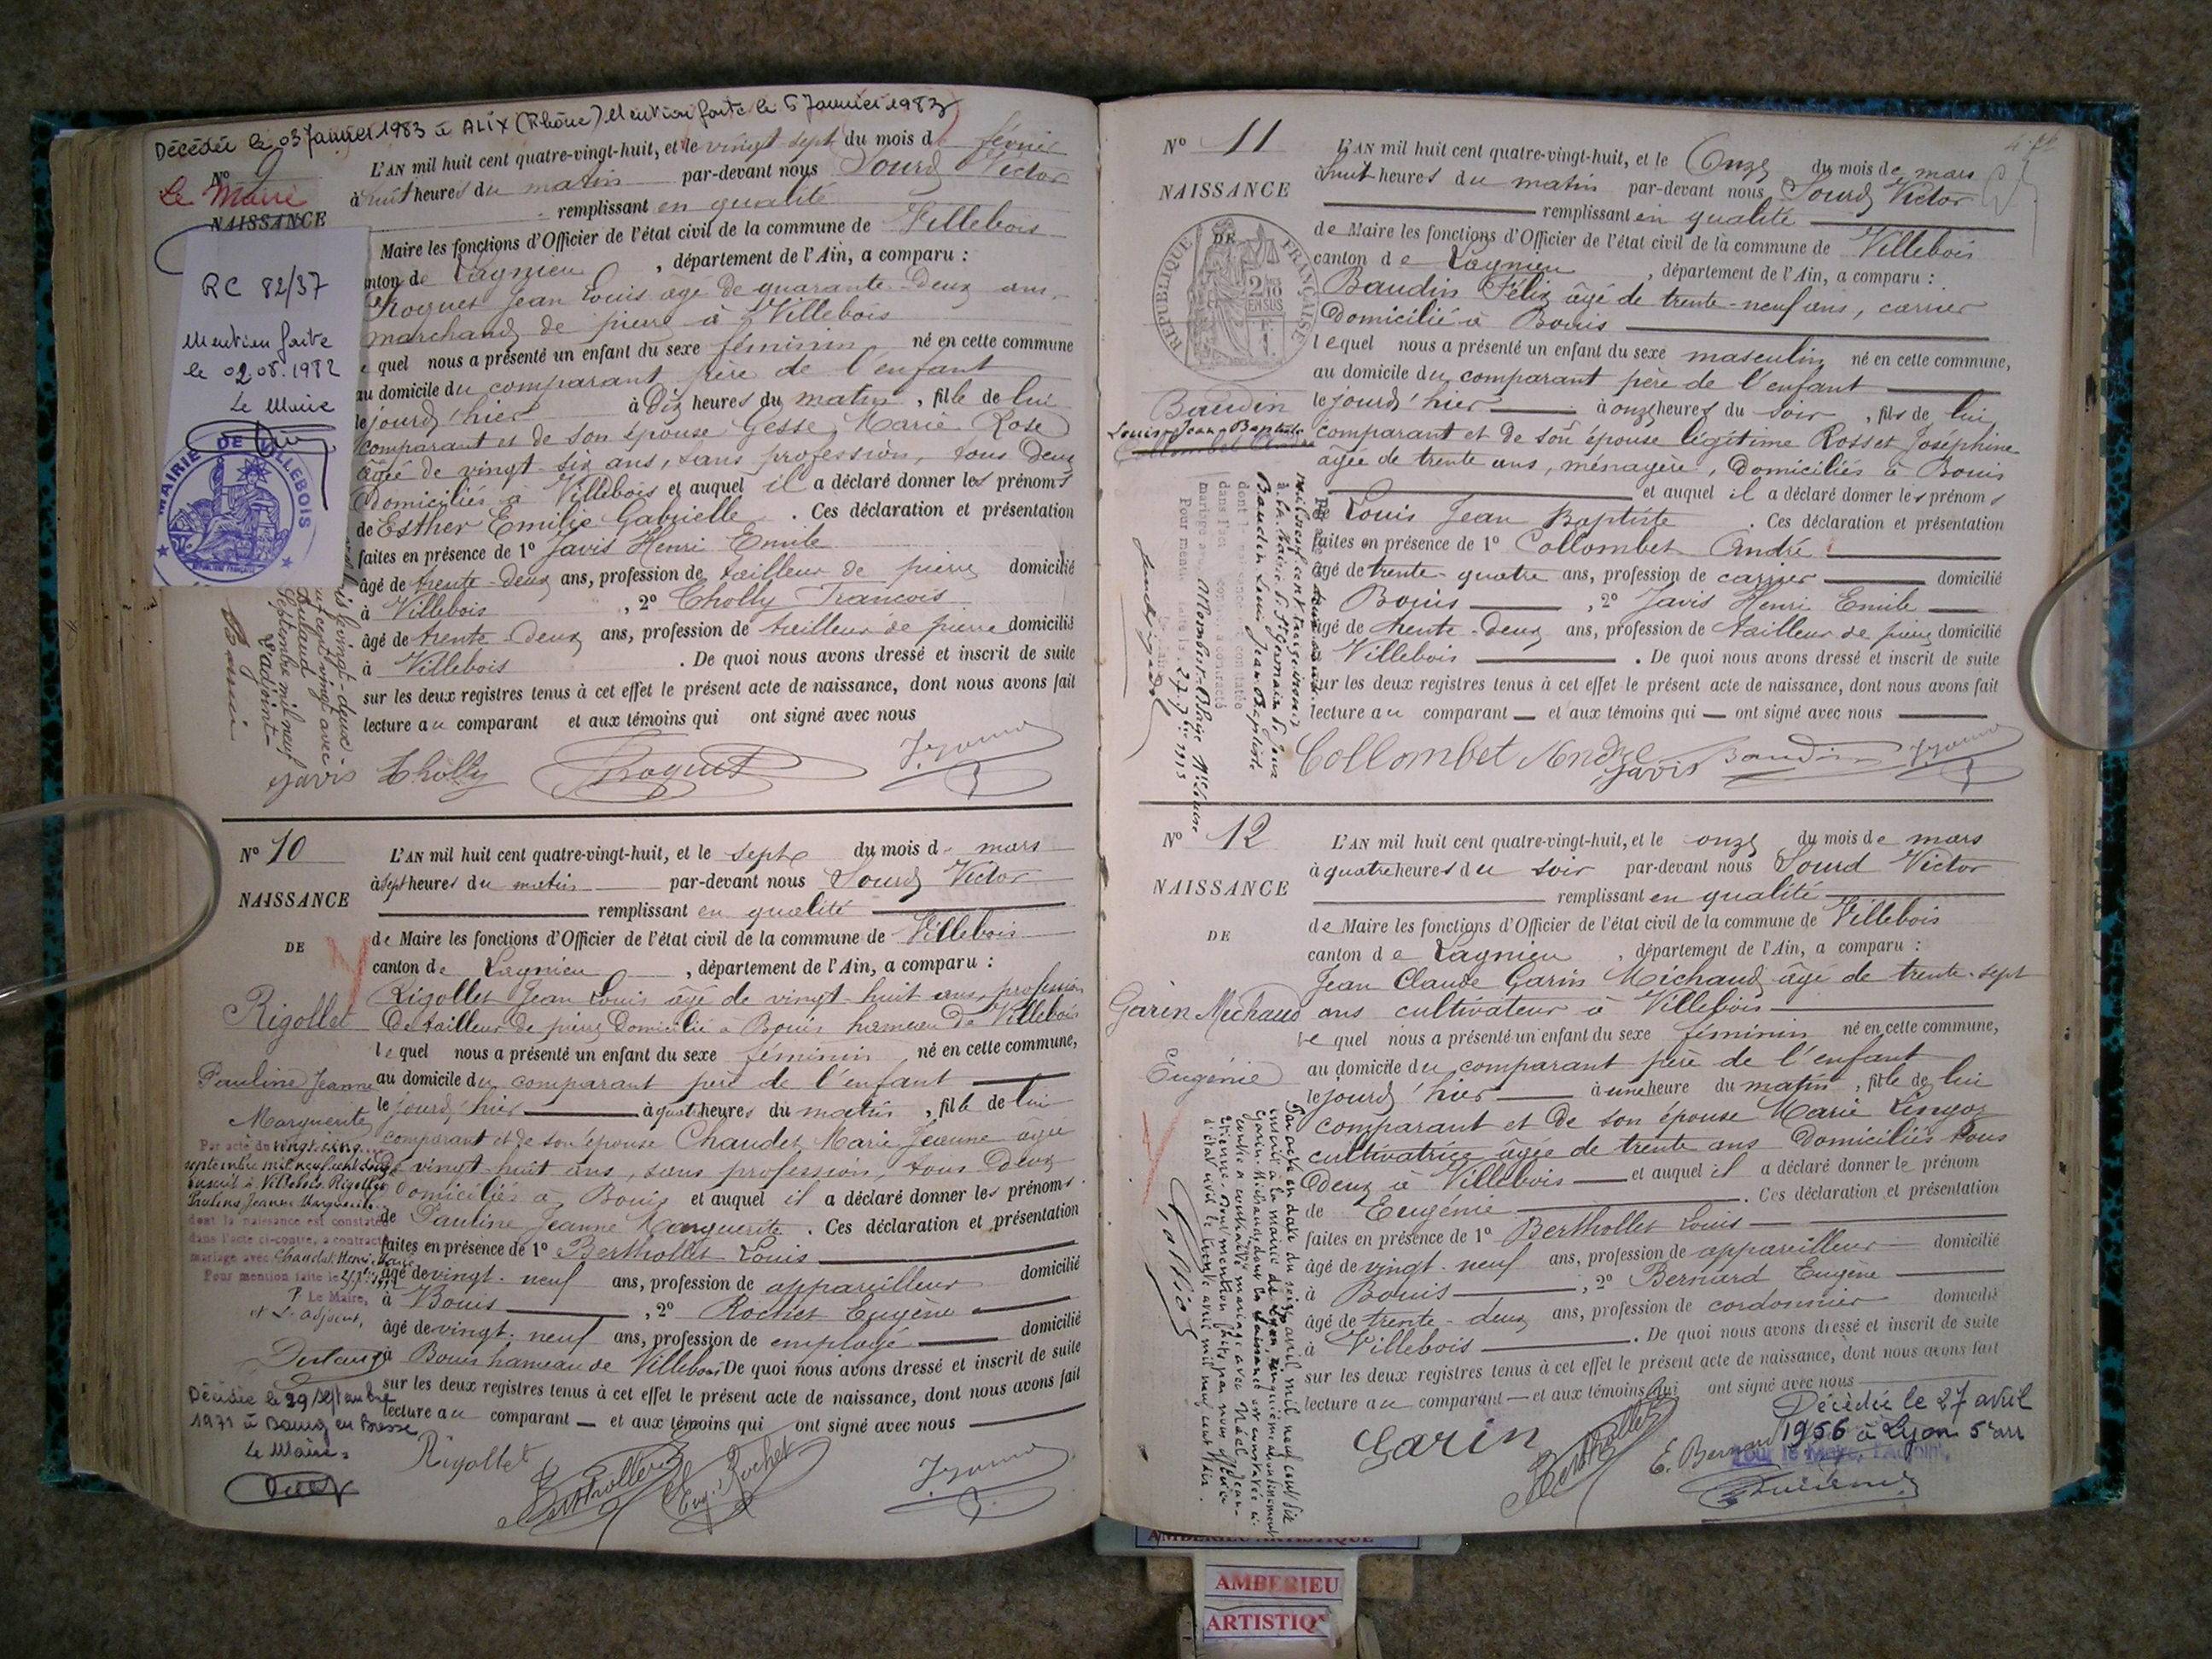 Décédée le 03 Janvier 1983 à ALIX (Rhône) Mention faite le 5 Janvier 1983
Le Maire
N° 9
NAISSANCE
RC 82/37
Mention faite
le 02 08. 1982
Le Maire
MAIRIE DE VILLEBOIS
RÉPUBLIQUE FRANÇAISE
L'AN mil huit cent quatre-vingt-huit, et le vingt sept du mois de février
à huit heures du matin par-devant nous Sourd Victor
remplissant en qualité
Maire les fonctions d'Officier de l'état civil de la commune de Villebois
nton de Lagnieu, département de l'Ain, a comparu :
Roguet Jean Louis âgé de quarante-deux ans
marchand de pierre à Villebois
e quel nous a présenté un enfant du sexe féminin né en cette commune
au domicile du comparant père de l'enfant
le jour d'hier à dix heures du matin, fille de lui
comparant et de son épouse Gesse Marie Rose
âgée de vingt-six ans, sans profession, tous deux
domiciliés à Villebois et auquel il a déclaré donner les prénoms
de Esther Emilie Gabrielle. Ces déclaration et présentation
faites en présence de 1° Javis Henri Emile
âgé de trente-deux ans, profession de tailleur de pierre domicilié
à Villebois, 2° Cholly Francois
âgé de trente-deux ans, profession de tailleur de pierre domicilié
à Villebois. De quoi nous avons dressé et inscrit de suite
sur les deux registres tenus à cet effet le présent acte de naissance, dont nous avons fait
lecture au comparant et aux témoins qui ont signé avec nous
vingt-deux
avec
Septembre mil neuf
L'adjoint
Javis Cholly Roguet
N° 10
NAISSANCE
DE
Rigollet
Pauline Jeanne
Marguerite
Par acte du vingt-cinq
septembre mil neuf cent
inscrit à Villebois Rigollet
Pauline Jeanne Marguerite
dont la naissance est constatée
dans l'acte ci-contre, a contracté
mariage avec Chaudet Henri
Pour mention faite le
P. Le Maire,
L'adjoint,
Décédée le 29 septembre
1971 à Bourg en Bresse
Le Maire
L'AN mil huit cent quatre-vingt-huit, et le sept du mois de mars
à sept heures du matin par-devant nous Sourd Victor
remplissant en qualité
de Maire les fonctions d'Officier de l'état civil de la commune de Villebois
canton de Lagnieu, département de l'Ain, a comparu :
Rigollet Jean Louis âgé de vingt-huit ans, profession
de tailleur de pierre domicilié à Bouis hameau de Villebois
lequel nous a présenté un enfant du sexe féminin, né en cette commune,
au domicile du comparant père de l'enfant
le jour d'hier à quatre heures du matin, fille de lui
comparant et de son épouse Chaudet Marie Jeanne agée
de vingt-huit ans, sans profession, tous deux
domiciliés à Bouis et auquel il a déclaré donner les prénoms
de Pauline Jeanne Marguerite. Ces déclaration et présentation
faites en présence de 1° Berthollet Louis
âgé de vingt-neuf ans, profession de appareilleur domicilié
à Bouis, 2° Rochet Eugène
âgé de vingt-neuf ans, profession de employé domicilié
à Bouis hameau de Villebois De quoi nous avons dressé et inscrit de suite
sur les deux registres tenus à cet effet le présent acte de naissance, dont nous avons fait
lecture au comparant et aux témoins qui ont signé avec nous
Rigollet Berthollet Eug. Rochet
N° 11
NAISSANCE
DE
RÉPUBLIQUE FRANÇAISE
Baudin
Louis-Jean-Baptiste
L'AN mil huit cent quatre-vingt-huit, et le Onze du mois de mars
à huit heures du matin par-devant nous Sourd Victor
remplissant en qualité
de Maire les fonctions d'Officier de l'état civil de la commune de Villebois
canton de Lagnieu, département de l'Ain, a comparu :
Baudin Félix âgé de trente-neuf ans, carrier
domicilié à Bouis
lequel nous a présenté un enfant du sexe masculin né en cette commune,
au domicile du comparant père de l'enfant
le jour d'hier à onze heures du soir, fils de lui
comparant et de son épouse légitime Rosset Joséphine
âgée de trente ans, ménagère, domiciliés à Bouis
et auquel il a déclaré donner les prénoms
de Louis Jean Baptiste. Ces déclaration et présentation
faites en présence de 1° Collombet André
âgé de trente-quatre ans, profession de carrier domicilié
Bouis, 2° Javis Henri Emile
âgé de trente-deux ans, profession de tailleur de pierre domicilié
Villebois. De quoi nous avons dressé et inscrit de suite
sur les deux registres tenus à cet effet le présent acte de naissance, dont nous avons fait
lecture au comparant et aux témoins qui ont signé avec nous
Baudin Louis Jean Baptiste
Collombet André Javis Baudin
N° 12
NAISSANCE
DE
Garin Michaud
Eugénie
L'AN mil huit cent quatre-vingt-huit, et le onze du mois de mars
à quatre heures du soir par-devant nous Sourd Victor
remplissant en qualité
de Maire les fonctions d'Officier de l'état civil de la commune de Villebois
canton de Lagnieu, département de l'Ain, a comparu :
Jean Claude Garin Michaud âgé de trente-sept
ans cultivateur à Villebois
lequel nous a présenté un enfant du sexe féminin né en cette commune,
au domicile du comparant père de l'enfant
le jour d'hier à une heure du matin, fille de lui
comparant et de son épouse Marie Lingoz
cultivatrice âgée de trente ans domiciliés tous
deux à Villebois et auquel il a déclaré donner le prénom
de Eugénie. Ces déclaration et présentation
faites en présence de 1° Berthollet Louis
âgé de vingt-neuf ans, profession de appareilleur domicilié
à Bouis, 2° Bernard Eugène
âgé de trente-deux ans, profession de cordonnier domicilié
à Villebois. De quoi nous avons dressé et inscrit de suite
sur les deux registres tenus à cet effet le présent acte de naissance, dont nous avons fait
lecture au comparant et aux témoins qui ont signé avec nous
Garin Berthollet E. Bernard
Décédée le 27 avril
1956 à Lyon 5e arr
Pour le Maire, l'Adjoint,
AMBERIEU ARTISTIQUE
AMBERIEU
ARTISTIQ